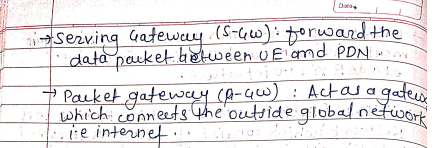 Date
→ Serving Gateway (S-GW): forward the
data packet between UE and PDN
→ Packet gateway (P-GW) : Act as a gateway
which connects the outside global network
i.e internet.